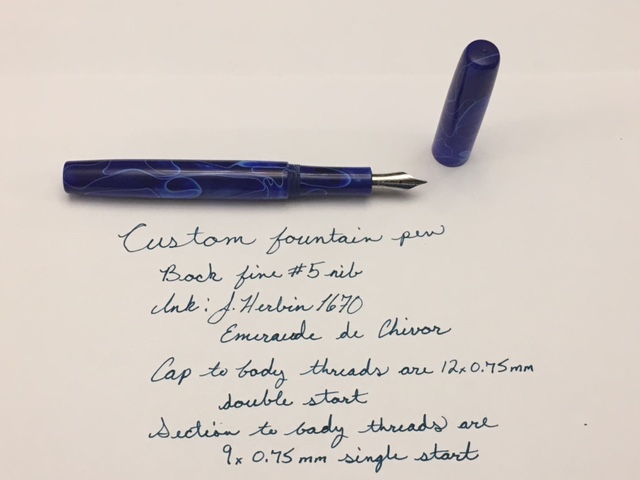 Custom fountain pen
Bock fine #5 nib
Ink: J. Herbin 1670
Emeraude de Chivor
Cap to body threads are 12x0.75mm
double start
Section to body threads are
9x 0.75 mm single start